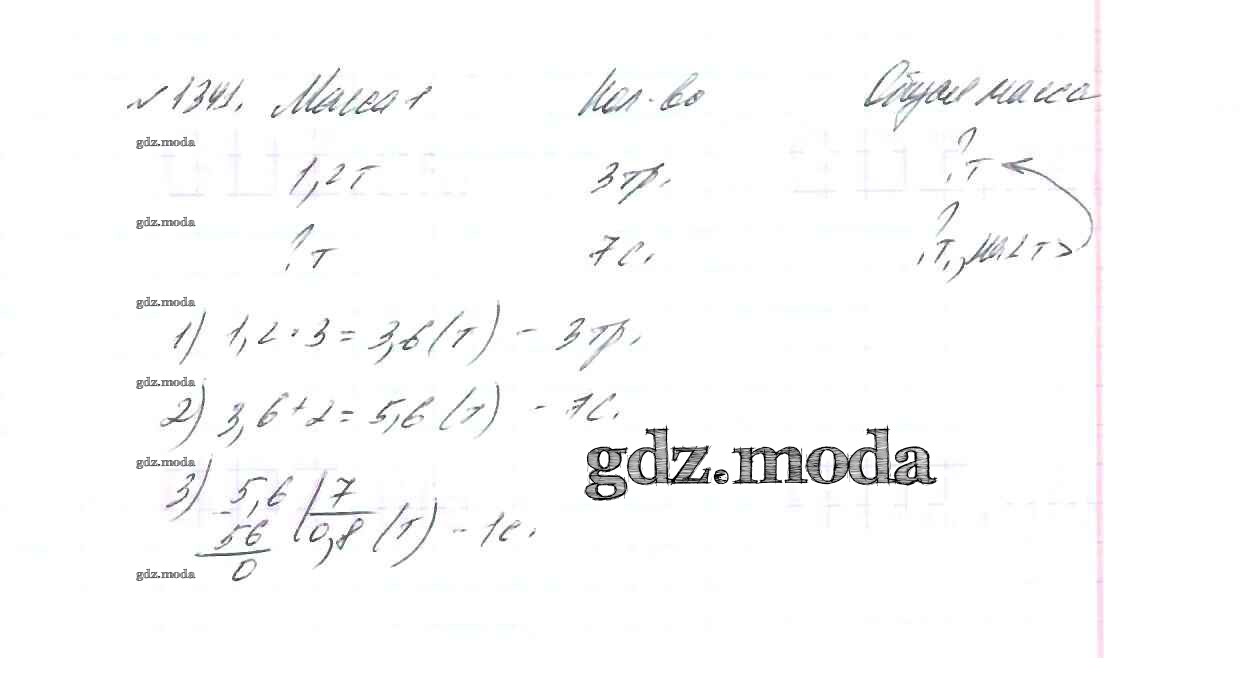 № 1341. Масса 1 Кол-во Общая масса
gdz.moda
1,2 т 3 тр. ? т
gdz.moda
? т 7 с. ? т, на 2 т >
gdz.moda
1) 1,2 · 3 = 3,6 (т) - 3 тр.
gdz.moda
2) 3,6 + 2 = 5,6 (т) - 7 с.
gdz.moda
gdz.moda
3) 5,6 | 7
56 0,8 (т) - 1 с.
0
gdz.moda